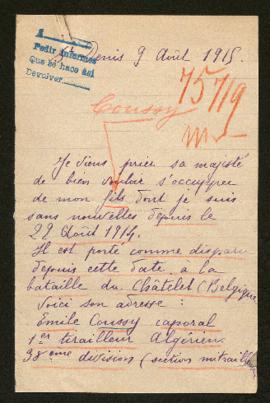 1
Pedir informes
Que se hace del
Devolver
St Denis 9 Août 1915.
75719
Coussy
Je viens prier sa majesté
de bien vouloir s'occuper
de mon fils dont je suis
sans nouvelles depuis le
22 Août 1914.
Il est porté comme disparu
depuis cette date à la
bataille du Châtelet (Belgique
Voici son adresse :
Emile Coussy caporal
1er tirailleur Algérien
38eme division (section mitrailleu